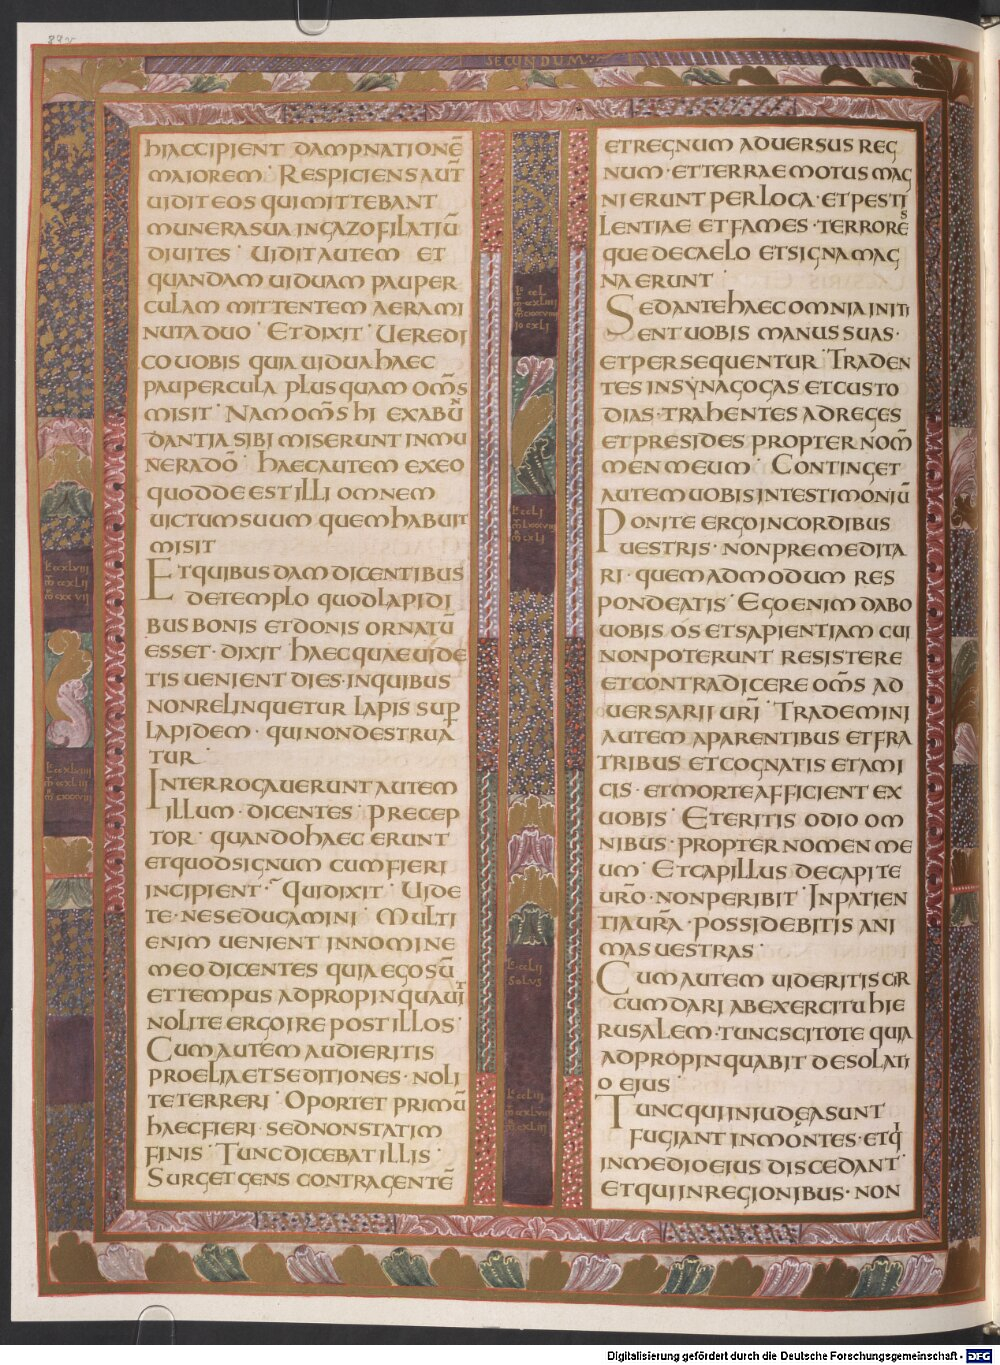 SECUNDUM
HI ACCIPIENT DAMPNATIONĒ
MAIOREM · RESPICIENS AUT̄
UIDIT EOS QUI MITTEBANT
MUNERA SUA IN GAZOFILATIŪ
DIUITES · UIDIT AUTEM ET
QUANDAM UIDUAM PAUPER
CULAM MITTENTEM AERA MI
NUTA DUO · ET DIXIT · UERE DI
CO UOBIS QUIA UIDUA HAEC
PAUPERCULA PLUS QUAM OM̄S
MISIT · NAM OM̄S HI EX ABUN̄
DANTIA SIBI MISERUNT IN MU
NERA DŌ · HAEC AUTEM EX EO
QUOD DEEST ILLI OMNEM
UICTUM SUUM QUEM HABUIT
MISIT
ET QUIBUSDAM DICENTIBUS
DE TEMPLO QUOD LAPIDI
BUS BONIS ET DONIS ORNATŪ
ESSET · DIXIT HAEC QUAE UIDE
TIS UENIENT DIES · IN QUIBUS
NON RELINQUETUR LAPIS SUP̄
LAPIDEM · QUI NON DESTRUA
TUR ·
INTERROGAUERUNT AUTEM
ILLUM · DICENTES · PRECEP
TOR · QUANDO HAEC ERUNT
ET QUOD SIGNUM CUM FIERI
INCIPIENT · QUI DIXIT · UIDE
TE · NE SEDUCAMINI · MULTI
ENIM UENIENT IN NOMINE
MEO DICENTES QUIA EGO SŪ
ET TEMPUS ADPROPINQUAUIT
NOLITE ERGO IRE POST ILLOS ·
CUM AUTEM AUDIERITIS
PROELIA ET SEDITIONES · NOLI
TE TERRERI · OPORTET PRIMŪ
HAEC FIERI · SED NON STATIM
FINIS · TUNC DICEBAT ILLIS ·
SURGET GENS CONTRA GENTĒ
ET REGNUM ADUERSUS REG
NUM · ET TERRAE MOTUS MAG
NI ERUNT PER LOCA · ET PESTI
LENTIAE ET FAMES · TERRORES
QUE DE CAELO ET SIGNA MAG
NA ERUNT ·
SED ANTE HAEC OMNIA INITI
ENT UOBIS MANUS SUAS ·
ET PERSEQUENTUR · TRADEN
TES IN SYNAGOGAS ET CUSTO
DIAS · TRAHENTES AD REGES
ET PRESIDES PROPTER NOM̄
MEN MEUM · CONTINGET
AUTEM UOBIS IN TESTIMONIŪ
PONITE ERGO IN CORDIBUS
UESTRIS · NON PREMEDITA
RI · QUEMADMODUM RES
PONDEATIS · EGO ENIM DABO
UOBIS OS ET SAPIENTIAM CUI
NON POTERUNT RESISTERE
ET CONTRADICERE OM̄S AD
UERSARII URĪ · TRADEMINI
AUTEM A PARENTIBUS ET FRA
TRIBUS ET COGNATIS ET AMI
CIS · ET MORTE AFFICIENT EX
UOBIS · ET ERITIS ODIO OM
NIBUS · PROPTER NOMEN ME
UM · ET CAPILLUS DE CAPITE
URŌ · NON PERIBIT · IN PATIEN
TIA URĀ · POSSIDEBITIS ANI
MAS UESTRAS ·
CUM AUTEM UIDERITIS CIR
CUMDARI AB EXERCITU HIE
RUSALEM · TUNC SCITOTE QUIA
ADPROPINQUABIT DESOLATI
O EIUS
TUNC QUI IN IUDEA SUNT
FUGIANT IN MONTES · ET Q̄
IN MEDIO EIUS DISCEDANT ·
ET QUI IN REGIONIBUS · NON
Digitalisierung gefördert durch die Deutsche Forschungsgemeinschaft - DFG